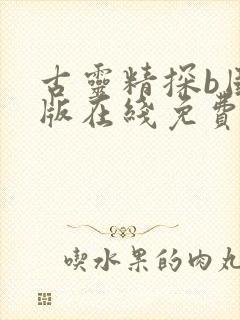 古靈精探b
版在綫免費
喫水果的肉丸